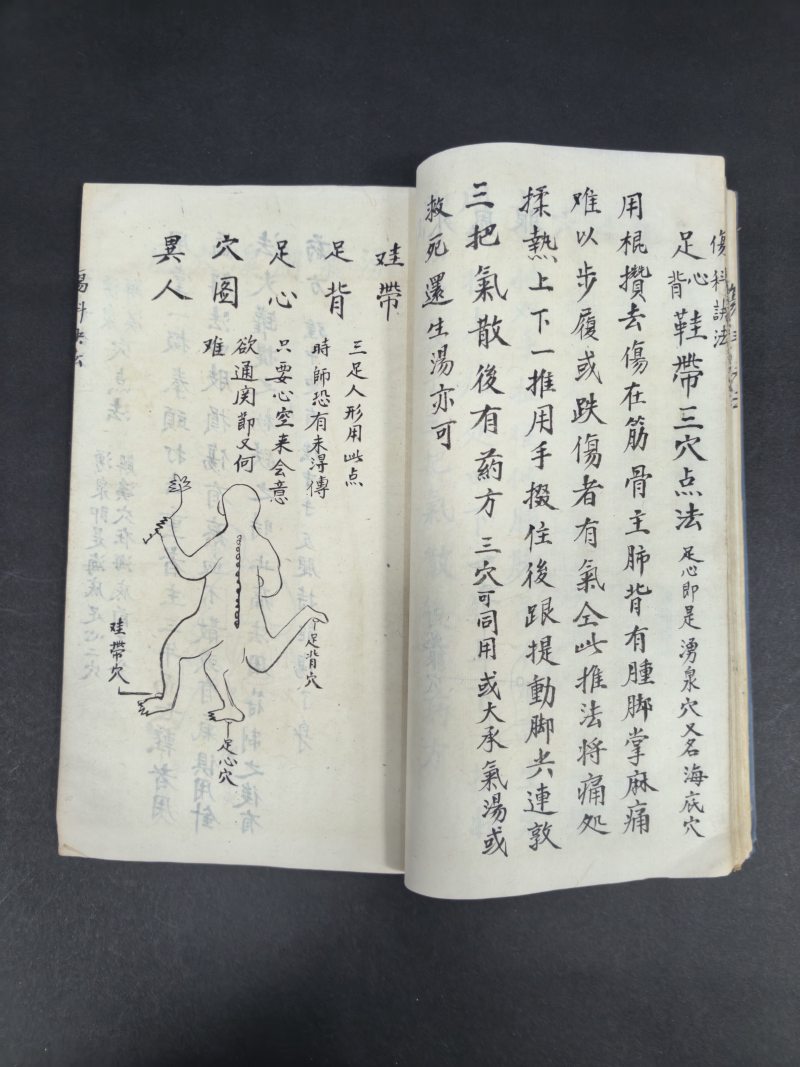 傷科訣法
足心足背鞋帶三穴点法 足心即是湧泉穴又名海底穴
用棍攢去傷在筋骨主肺背有腫脚掌麻痛
难以步履或跌傷者有氣仝此推法將痛処
揉熱上下一推用手掇住後跟提動脚共連敦
三把氣散後有葯方 三穴可同用或大承氣湯或
救死還生湯亦可
娃帶
足背
足心
穴图
異人
三足人形用此点
時師恐有未淂傳
只要心空来会意
欲通関節又何
难
足背穴
足心穴
娃帶穴